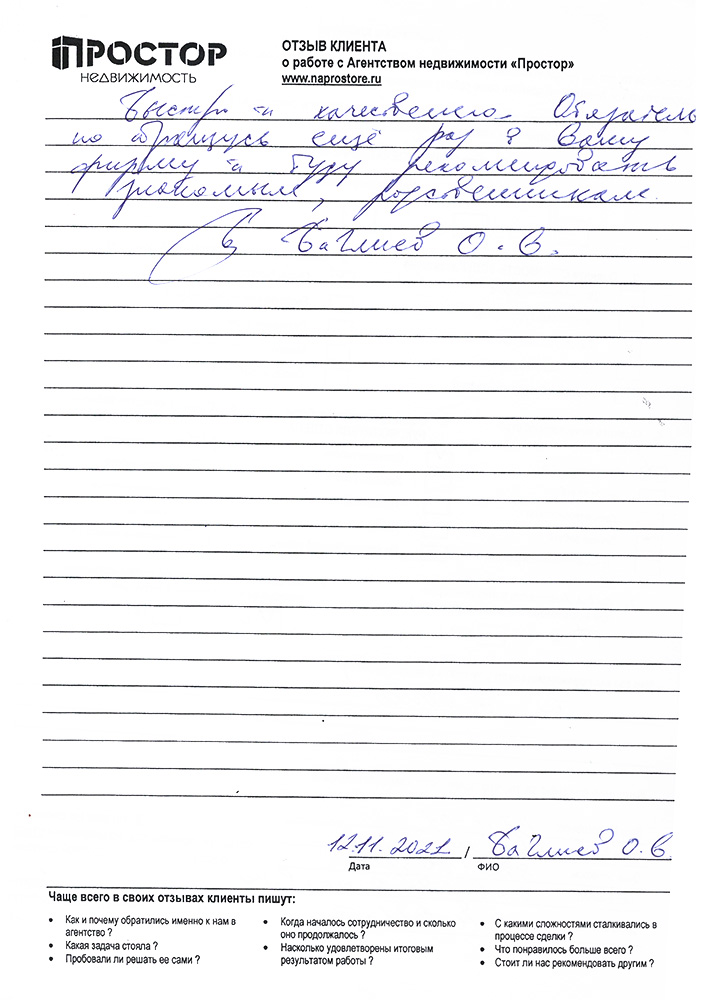 ПРОСТОР
НЕДВИЖИМОСТЬ
ОТЗЫВ КЛИЕНТА
о работе с Агентством недвижимости «Простор»
www.naprostore.ru
Быстро и качественно. Обязатель
но обращусь ещё раз в Вашу
фирму и буду рекомендовать
знакомым, родственникам.
О. В.
12.11.2021 / О. В.
Дата ФИО
Чаще всего в своих отзывах клиенты пишут:
• Как и почему обратились именно к нам в
агентство ?
• Какая задача стояла ?
• Пробовали ли решать ее сами ?
• Когда началось сотрудничество и сколько
оно продолжалось ?
• Насколько удовлетворены итоговым
результатом работы ?
• С какими сложностями сталкивались в
процессе сделки ?
• Что понравилось больше всего ?
• Стоит ли нас рекомендовать другим ?